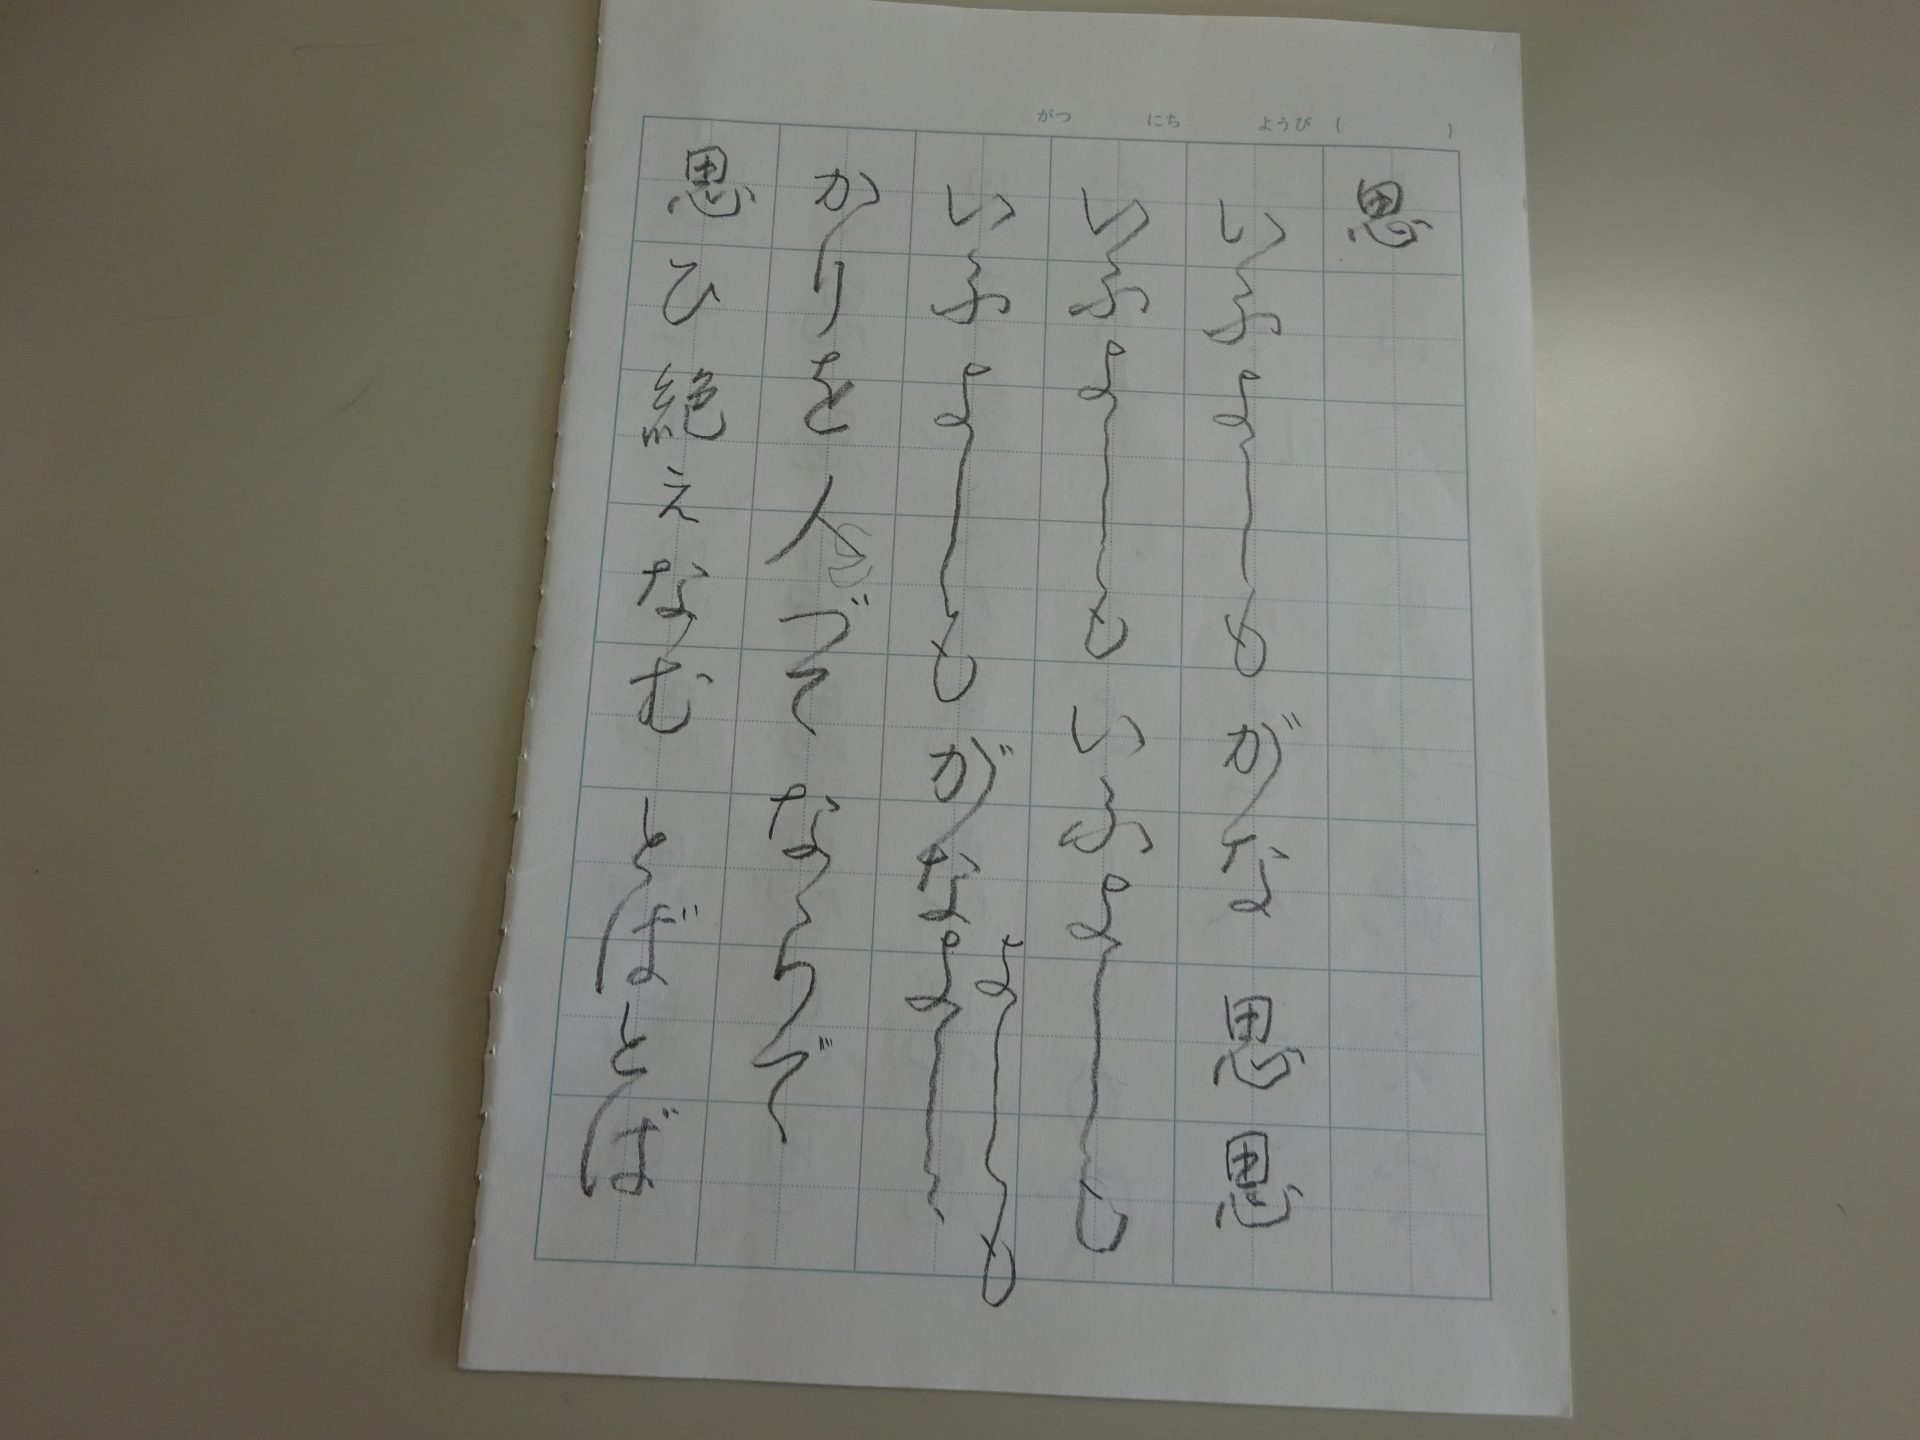 がつ にち ようび ( )
思
いふよしもがな思思
いふよしもいふよしも
いふよしもがなよし
よしも
かりを人づてならで
思ひ絶えなむとばとば